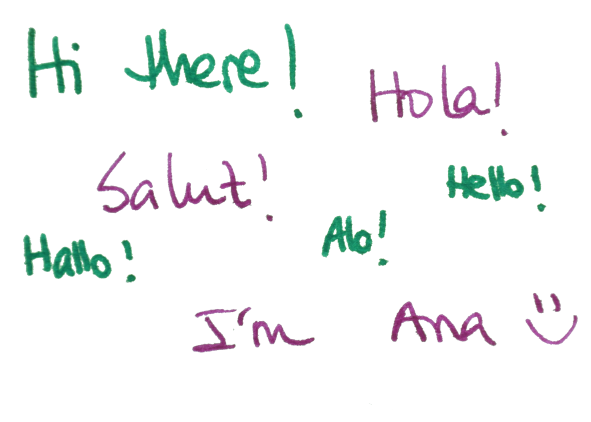 Hi there!
Hola!
Salut!
Hello!
Hallo!
Alo!
I'm Ana